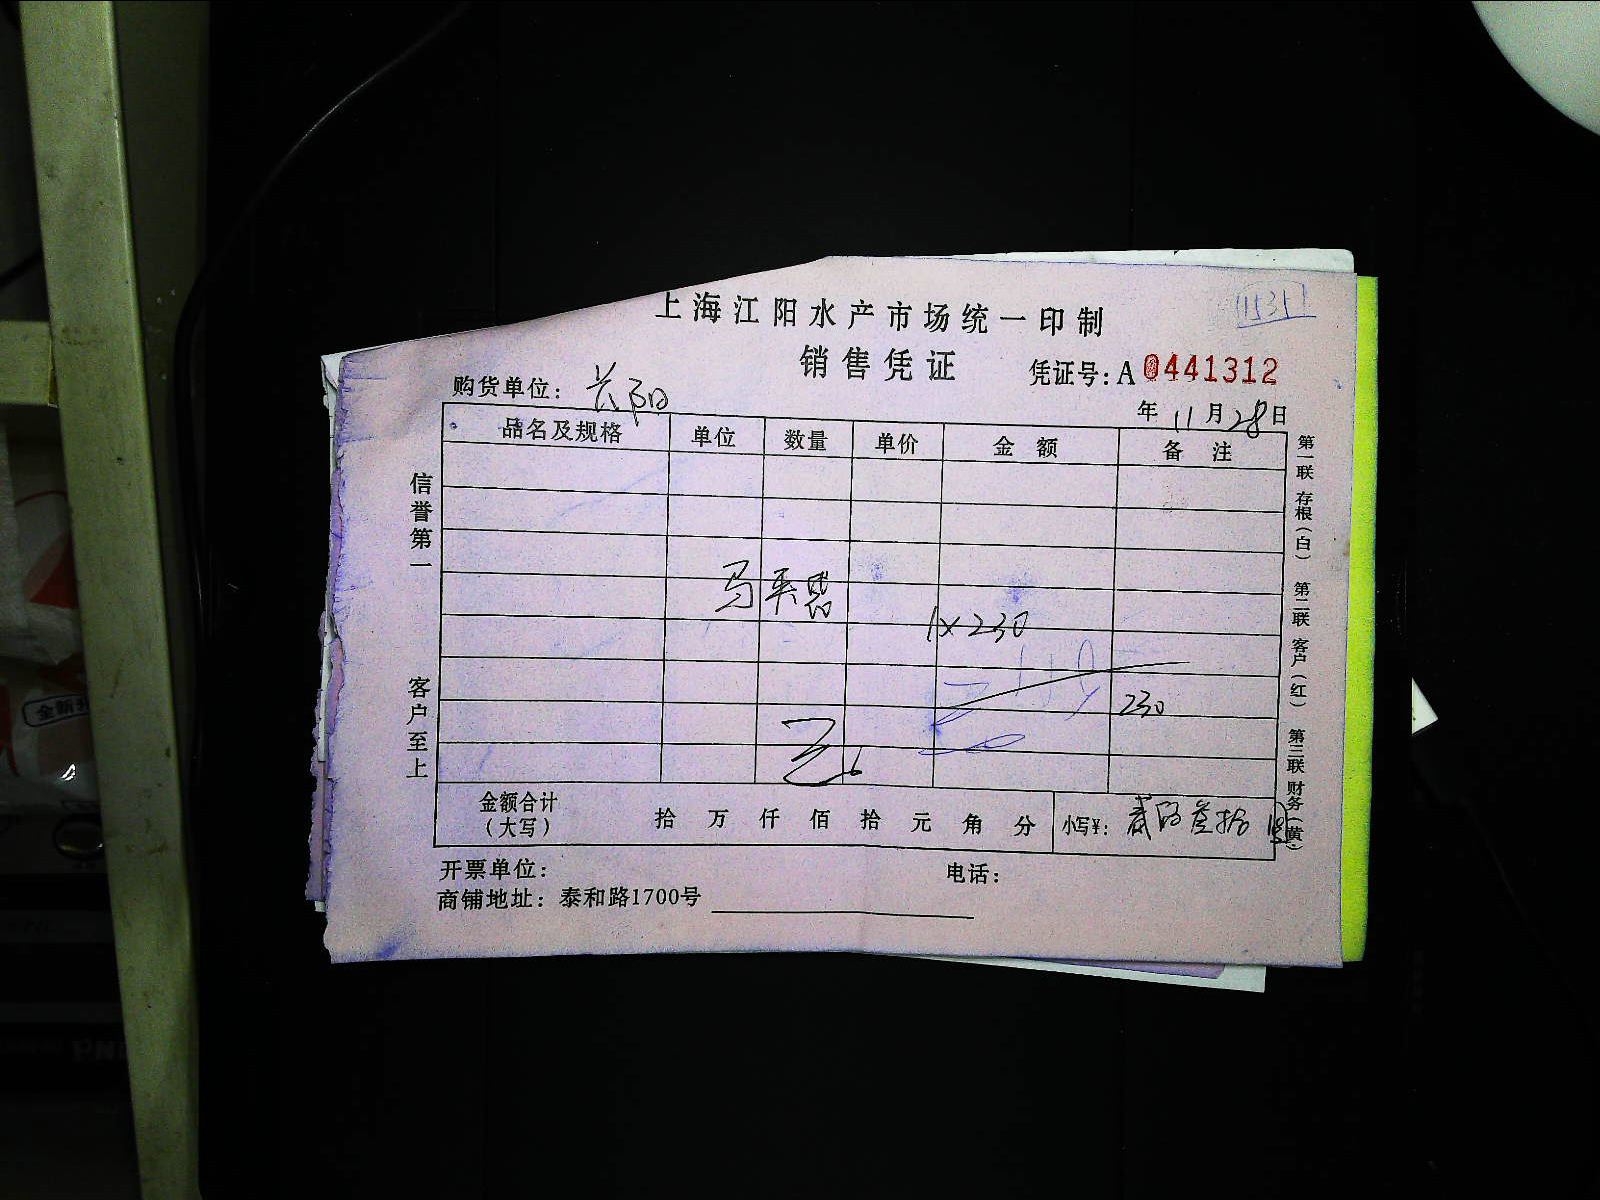 上海江阳水产市场统一印制
11535
销售凭证
凭证号:A 0441312
购货单位: 长阳
年 11 月 28 日
品名及规格 单位 数量 单价 金额 备注
信誉第一
客户至上
1×230
230
金额合计(大写) 拾 万 仟 佰 拾 元 角 分 小写¥: 贰佰叁拾
开票单位: 电话:
商铺地址: 泰和路1700号
第一联 存根(白) 第二联 客户(红) 第三联 财务(黄)